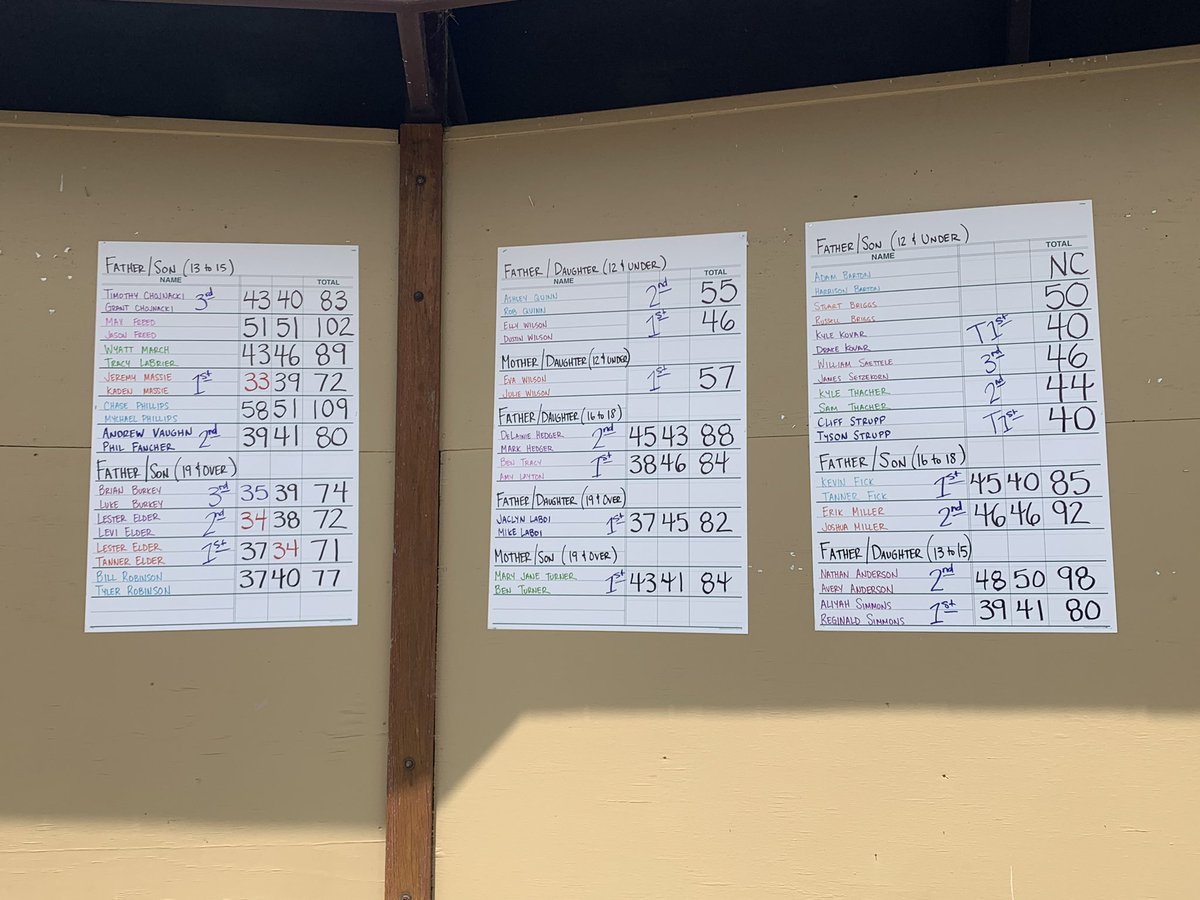 FATHER/SON (13 to 15)
NAME TOTAL
TIMOTHY CHOJNACKI 3rd 43 40 83
GRANT CHOJNACKI
MAX FREED 51 51 102
JASON FREED
WYATT MARCH 43 46 89
TRACY LABRIER
JEREMY MASSIE 1st 33 39 72
KADEN MASSIE
CHASE PHILLIPS 58 51 109
MICHAEL PHILLIPS
ANDREW VAUGHN 2nd 39 41 80
PHIL FANCHER
FATHER/SON (19 & OVER)
BRIAN BURKEY 3rd 35 39 74
LUKE BURKEY
LESTER ELDER 2nd 34 38 72
LEVI ELDER
LESTER ELDER 1st 37 34 71
TANNER ELDER
BILL ROBINSON 37 40 77
TYLER ROBINSON
FATHER/DAUGHTER (12 & UNDER)
NAME TOTAL
ASHLEY QUINN 2nd 55
ROB QUINN
ELLY WILSON 1st 46
DUSTIN WILSON
MOTHER/DAUGHTER (12 & UNDER)
EVA WILSON 1st 57
JULIE WILSON
FATHER/DAUGHTER (16 to 18)
DELAINIE HEDGER 2nd 45 43 88
MARK HEDGER
BEN TRACY 1st 38 46 84
AMY LAYTON
FATHER/DAUGHTER (19 & OVER)
JACLYN LABOI 1st 37 45 82
MIKE LABOI
MOTHER/SON (19 & OVER)
MARY JANE TURNER 1st 43 41 84
BEN TURNER
FATHER/SON (12 & UNDER)
NAME TOTAL
ADAM BARTON NC
HARRISON BARTON
STUART BRIGGS 50
RUSSELL BRIGGS
KYLE KOVAR T1st 40
DRAKE KOVAR
WILLIAM SAETTELE 3rd 46
JAMES SETZEKORN
KYLE THACHER 2nd 44
SAM THACHER
CLIFF STRUPP T1st 40
TYSON STRUPP
FATHER/SON (16 to 18)
KEVIN FICK 1st 45 40 85
TANNER FICK
ERIK MILLER 2nd 46 46 92
JOSHUA MILLER
FATHER/DAUGHTER (13 to 15)
NATHAN ANDERSON 2nd 48 50 98
AVERY ANDERSON
ALIYAH SIMMONS 1st 39 41 80
REGINALD SIMMONS